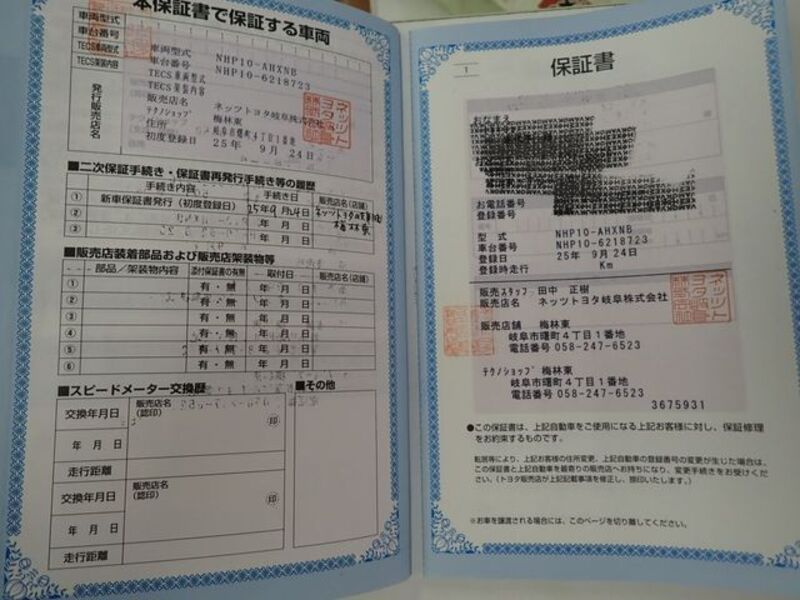 本保証書で保証する車両
車両型式
車台番号
TECS車両型式
TECS架装内容
発行販売店名
車両型式 NHP10-AHXNB
車台番号 NHP10-6218723
TECS車両型式
TECS架装内容
販売店名 ネッツトヨタ岐阜株式会社
テクノショップ 梅林東
住所 岐阜市曙町4丁目1番地
初度登録日 25年 9月 24日
■二次保証手続き・保証書再発行手続き等の履歴
手続き内容 手続き日 販売店名(店舗)
① 新車保証書発行(初度登録日) 25年9月24日 ネッツトヨタ岐阜 梅林東
② 年 月 日
③ 年 月 日
■販売店装着部品および販売店架装物等
部品/架装物内容 添付保証書の有無 取付日 販売店名(店舗)
① 有・無 年 月 日
② 有・無 年 月 日
③ 有・無 年 月 日
④ 有・無 年 月 日
⑤ 有・無 年 月 日
⑥ 有・無 年 月 日
■スピードメーター交換歴
交換年月日 販売店名(認印)
年 月 日 印
走行距離
交換年月日 販売店名(認印)
年 月 日 印
走行距離
■その他
1
保証書
おなまえ
お電話番号
登録番号
型式 NHP10-AHXNB
車台番号 NHP10-6218723
登録日 25年 9月24日
登録時走行 Km
販売スタッフ 田中 正樹
販売店名 ネッツトヨタ岐阜株式会社
販売店舗 梅林東
岐阜市曙町4丁目1番地
電話番号 058-247-6523
テクノショップ 梅林東
岐阜市曙町4丁目1番地
電話番号 058-247-6523
3675931
●この保証書は、上記自動車をご使用になる上記お客様に対し、保証修理
をお約束するものです。
転居等により、上記お客様の住所変更、上記自動車の登録番号の変更が生じた場合は、
この保証書と上記自動車を最寄りの販売店へお持ちになり、変更手続きをお受けくだ
さい。(トヨタ販売店が上記記載事項を修正し、捺印いたします。)
※お車を譲渡される場合には、このページを切り離してください。